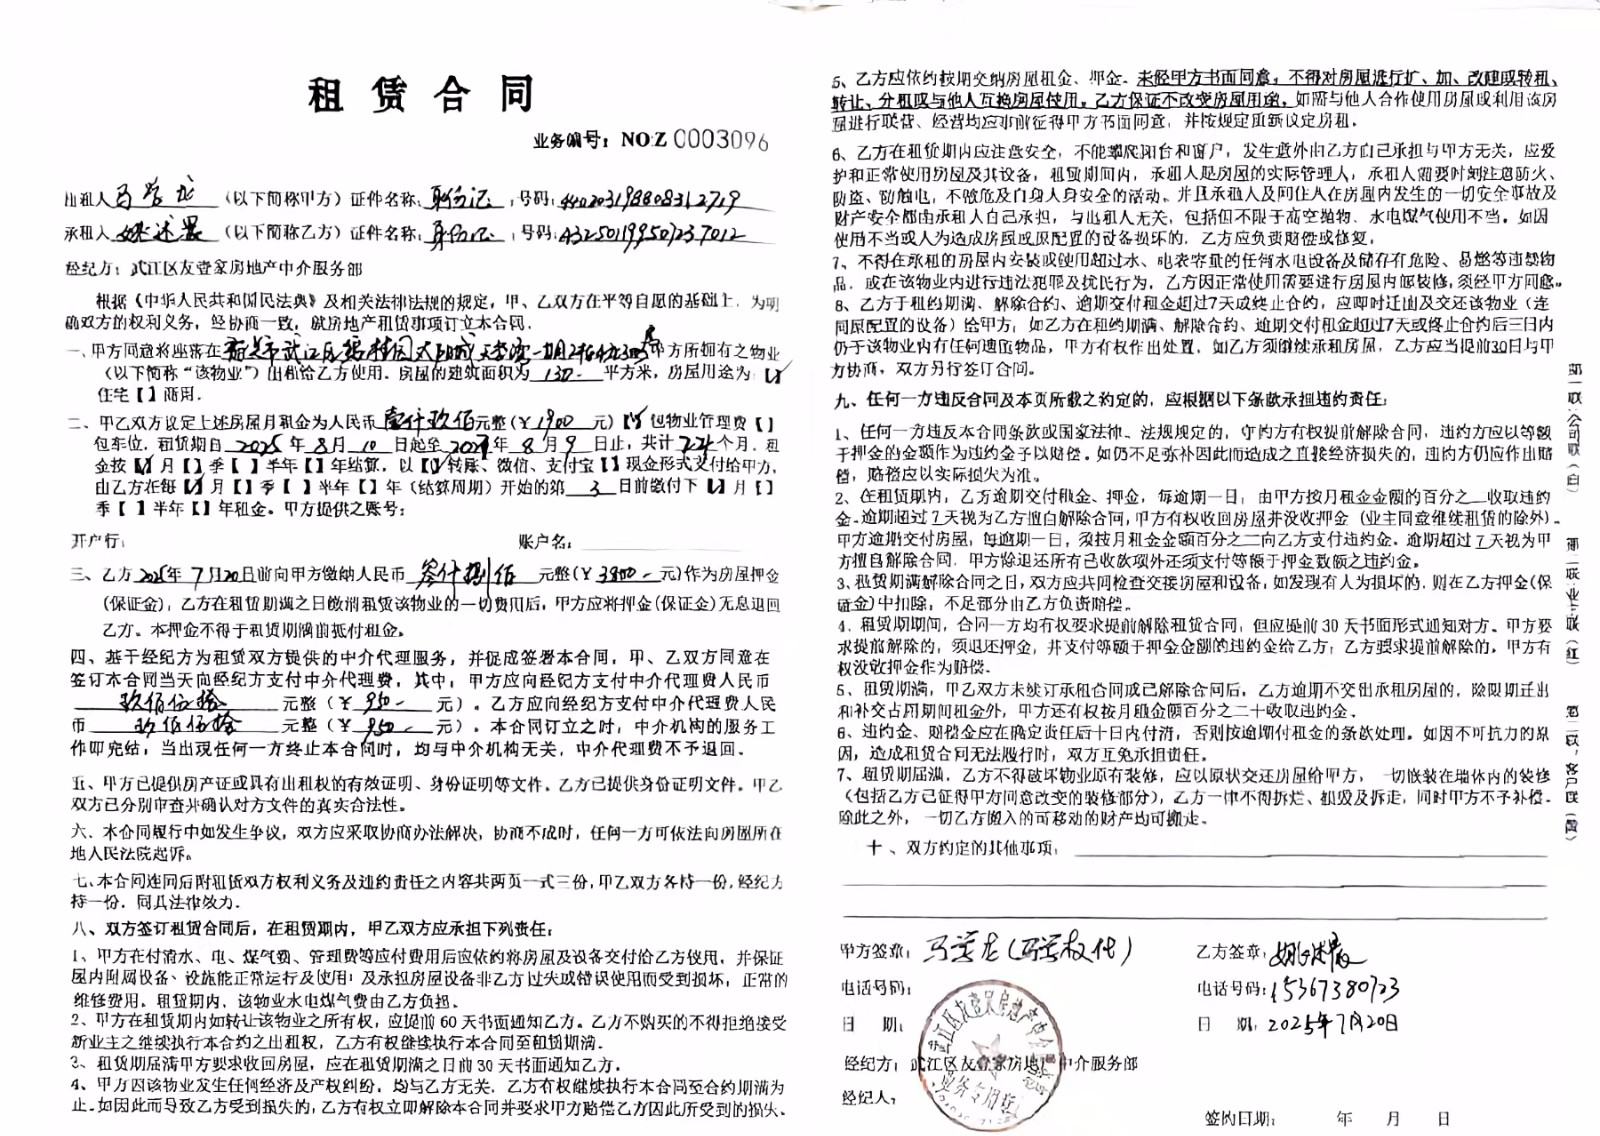 租赁合同
业务编号：NO:Z 0003096
出租人马 龙（以下简称甲方）证件名称：身份证；号码：440203198808312719
承租人姚述 （以下简称乙方）证件名称：身份证；号码：432501199507237012
经纪方：武江区友壹家房地产中介服务部
根据《中华人民共和国民法典》及相关法律法规的规定，甲、乙双方在平等自愿的基础上，为明
确双方的权利义务，经协商一致，就房地产租赁事项订立本合同。
一、甲方同意将座落在韶关市武江区碧桂园太阳城天 湾一期2栋 甲方所拥有之物业
（以下简称“该物业”）出租给乙方使用。房屋的建筑面积为 130 平方米，房屋用途为【✓】
住宅【 】商用。
二、甲乙双方议定上述房屋月租金为人民币 壹仟玖佰元整（￥1900 元）【✓】包物业管理费【 】
包车位，租赁期自 2025 年 8 月 10 日起至 2027 年 8 月 9 日止，共计 24 个月，租
金按【✓】月【 】季【 】半年【 】年结算，以【✓】转账、微信、支付宝【 】现金形式支付给甲方，
由乙方在每【✓】月【 】季【 】半年【 】年（结算周期）开始的第 3 日前缴付下【✓】月【 】
季【 】半年【 】年租金。甲方提供之账号：
开户行： 账户名：
三、乙方 2025年 7月20日前向甲方缴纳人民币 叁仟捌佰 元整（￥3800 元）作为房屋押金
（保证金），乙方在租赁期满之日缴清租赁该物业的一切费用后，甲方应将押金（保证金）无息退回
乙方。本押金不得于租赁期满前抵付租金。
四、基于经纪方为租赁双方提供的中介代理服务，并促成签署本合同，甲、乙双方同意在
签订本合同当天向经纪方支付中介代理费，其中：甲方应向经纪方支付中介代理费人民币
玖佰伍拾 元整（￥950 元）。乙方应向经纪方支付中介代理费人民
币 玖佰伍拾 元整（￥950 元）。本合同订立之时，中介机构的服务工
作即完结，当出现任何一方终止本合同时，均与中介机构无关，中介代理费不予退回。
五、甲方已提供房产证或具有出租权的有效证明、身份证明等文件。乙方已提供身份证明文件。甲乙
双方已分别审查并确认对方文件的真实合法性。
六、本合同履行中如发生争议，双方应采取协商办法解决，协商不成时，任何一方可依法向房屋所在
地人民法院起诉。
七、本合同连同后附租赁双方权利义务及违约责任之内容共两页一式三份，甲乙双方各持一份，经纪方
持一份，同具法律效力。
八、双方签订租赁合同后，在租赁期内，甲乙双方应承担下列责任：
1、甲方在付清水、电、煤气费、管理费等应付费用后应依约将房屋及设备交付给乙方使用，并保证
屋内附属设备、设施能正常运行及使用；及承担房屋设备非乙方过失或错误使用而受到损坏，正常的
维修费用。租赁期内，该物业水电煤气费由乙方负担。
2、甲方在租赁期内如转让该物业之所有权，应提前 60 天书面通知乙方。乙方不购买的不得拒绝接受
新业主之继续执行本合约之出租权，乙方有权继续执行本合同至租赁期满。
3、租赁期届满甲方要求收回房屋，应在租赁期满之日前 30 天书面通知乙方。
4、甲方因该物业发生任何经济及产权纠纷，均与乙方无关，乙方有权继续执行本合同至合约期满为
止。如因此而导致乙方受到损失的，乙方有权立即解除本合同并要求甲方赔偿乙方因此所受到的损失。
5、乙方应依约按期交纳房屋租金、押金。未经甲方书面同意，不得对房屋进行扩、加、改建或转租、
转让、分租或与他人互换房屋使用，乙方保证不改变房屋用途，如需与他人合作使用房屋或利用该房
屋进行联营、经营均应事前征得甲方书面同意，并按规定重新议定房租。
6、乙方在租赁期内应注意安全，不能攀爬阳台和窗户，发生意外由乙方自己承担与甲方无关，应爱
护和正常使用房屋及其设备，租赁期间内，承租人是房屋的实际管理人，承租人需要时刻注意防火、
防盗、防触电，不做危及自身人身安全的活动。并且承租人及同住人在房屋内发生的一切安全事故及
财产安全都由承租人自己承担，与出租人无关，包括但不限于高空抛物、水电煤气使用不当。如因
使用不当或人为造成房屋或原配置的设备损坏的，乙方应负责赔偿或修复。
7、不得在承租的房屋内安装或使用超过水、电表容量的任何水电设备及储存有危险、易燃等违禁物
品，或在该物业内进行违法犯罪及扰民行为，乙方因正常使用需要进行房屋内部装修，须经甲方同意。
8、乙方于租约期满、解除合约、逾期交付租金超过7天或终止合约，应即时迁出及交还该物业（连
同原配置的设备）给甲方；如乙方在租约期满、解除合约、逾期交付租金超过7天或终止合约后三日内
仍于该物业内有任何遗留物品，甲方有权作出处置，如乙方须继续承租房屋，乙方应当提前30日与甲
方协商，双方另行签订合同。
九、任何一方违反合同及本页所载之约定的，应根据以下条款承担违约责任：
1、任何一方违反本合同条款或国家法律、法规规定的，守约方有权提前解除合同，违约方应以等额
于押金的金额作为违约金予以赔偿。如仍不足弥补因此而造成之直接经济损失的，违约方仍应作出赔
偿，赔偿应以实际损失为准。
2、在租赁期内，乙方逾期交付租金、押金，每逾期一日，由甲方按月租金金额的百分之二收取违约
金。逾期超过 7 天视为乙方擅自解除合同，甲方有权收回房屋并没收押金（业主同意继续租赁的除外）。
甲方逾期交付房屋，每逾期一日，须按月租金金额百分之二向乙方支付违约金。逾期超过 7 天视为甲
方擅自解除合同，甲方除退还所有已收款项外还须支付等额于押金数额之违约金。
3、租赁期满解除合同之日，双方应共同检查交接房屋和设备，如发现有人为损坏的，则在乙方押金（保
证金）中扣除，不足部分由乙方负责赔偿。
4、租赁期期间，合同一方均有权要求提前解除租赁合同，但应提前 30 天书面形式通知对方。甲方要
求提前解除的，须退还押金，并支付等额于押金金额的违约金给乙方；乙方要求提前解除的，甲方有
权没收押金作为赔偿。
5、租赁期满，甲乙双方未续订承租合同或已解除合同后，乙方逾期不交出承租房屋的，除限期迁出
和补交占用期间租金外，甲方还有权按月租金额百分之二十收取违约金。
6、违约金、赔偿金应在确定责任后十日内付清，否则按逾期付租金的条款处理。如因不可抗力的原
因，造成租赁合同无法履行时，双方互免承担责任。
7、租赁期届满，乙方不得破坏物业原有装修，应以原状交还房屋给甲方，一切嵌装在墙体内的装修
（包括乙方已征得甲方同意改变的装修部分），乙方一律不得拆烂、损毁及拆走，同时甲方不予补偿。
除此之外，一切乙方搬入的可移动的财产均可搬走。
十、双方约定的其他事项：
甲方签章： 马 龙（马 权代）
乙方签章：姚述
电话号码：
电话号码：15367380723
日 期：
日 期：2025年7月20日
经纪方：武江区友壹家房地产中介服务部
经纪人：
签约日期： 年 月 日
武江区友壹家房地产中介服务部
业务专用章
第一联：公司联（白）
第二联：业主联（红）
第三联：客户联（黄）